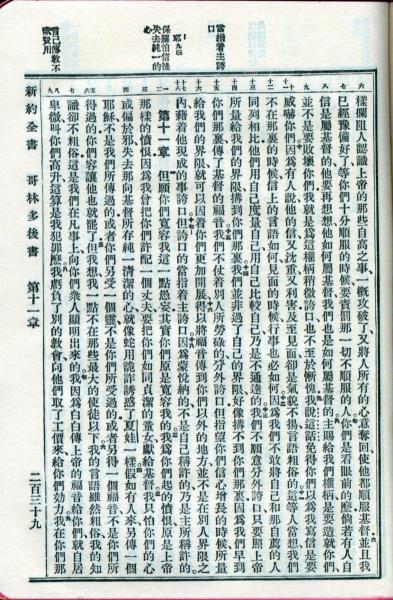 當指着主誇
口
耶九廿四
保羅怕信徒
失去純一的
心
言己傳教不
靠賢川
樣攔阻人認識上帝的那些自高之事一概攻破了又將人所有的心意奪回使他都順服基督並且我
已經豫備好了等你們十分順服的時候要責罰那一切不順服的人你們是看眼前的麼倘若有人自
信是屬基督的他要再想想他如何屬基督我們也是如何屬基督的主賜給我們權柄是要造就你們
並不是要敗壞你們我就是為這權柄稍微誇口也不至於慚愧我說這話免得你們以為我寫信是要
威嚇你們因為有人說他的信又沈重又利害及至見面卻是氣貌不揚言語粗俗的這等人當想我們
不在那裏的時候信上的言語如何見面的時候行事也必如何因為我們不敢將自己和那自薦的人
同列相比他們用自己度量自己用自己比較自己乃是不通達的我們不願意分外誇口只要照上帝
所量給我們的界限搆到你們那裏我們並非過了自己的界限好像搆不到你們那裏因為我們早到
你們那裏傳了基督的福音我們不仗着別人所勞碌的分外誇口但指望你們信心增長的時候所量
給我們的界限就可以因着你們更加開展得以將福音傳到你們以外的地方並不是在別人界限之
內藉着他現成的事誇口但誇口的當指着主誇口因為蒙悅納的不是自己稱許的乃是主所稱許的
第十一章 但願你們寬容我這一點愚妄其實你們原是寬容我的我為你們起的憤恨原是上帝
那樣的憤恨因為我曾把你們許配一個丈夫要把你們如同貞潔的童女獻給基督我只怕你們的心
或偏於邪失去那向基督所存純一清潔的心就像蛇用詭詐誘惑了夏娃一樣假如有人來另傳一個
耶穌不是我們所傳過的或者你們另受一個靈不是你們所受過的或者另得一個福音不是你們所
得過的你們容讓他也就罷了但我想我一點不在那些最大的使徒以下我的言語雖然粗俗我的知
識卻不粗俗這是我們在凡事上向你們衆人顯明出來的我因為白白傳上帝的福音給你們就自居
卑微叫你們高升這算是我犯罪麼我虧負了別的教會向他們取了工價來給你們効力我在你們那
新約全書 哥林多後書 第十一章 二百三十九